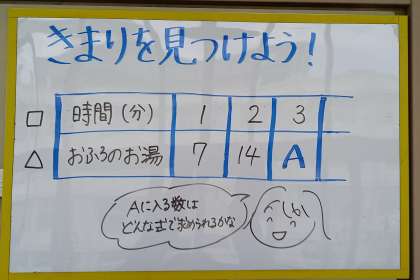 きまりを見つけよう！
□ 時間（分） 1 2 3
△ おふろのお湯 7 14 A
Aに入る数は
どんな式で求められるかな